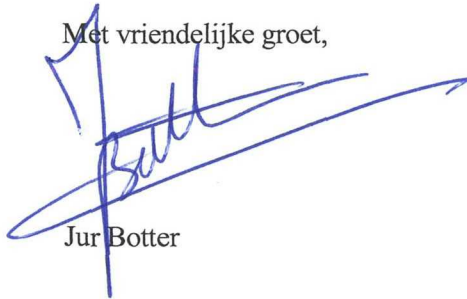 Met vriendelijke groet,
Jur Botter